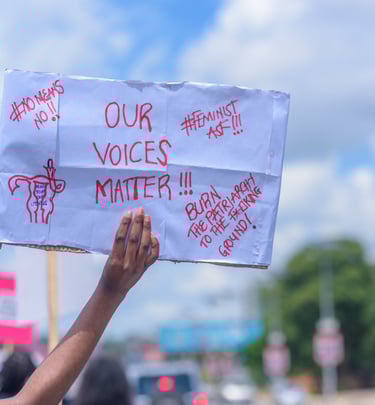 #NO MEANS
NO!!
OUR
VOICES
MATTER!!!
#FEMINIST
ASF!!!
BURN
THE PATRIARCHY
TO THE FREAKING
GROUND!